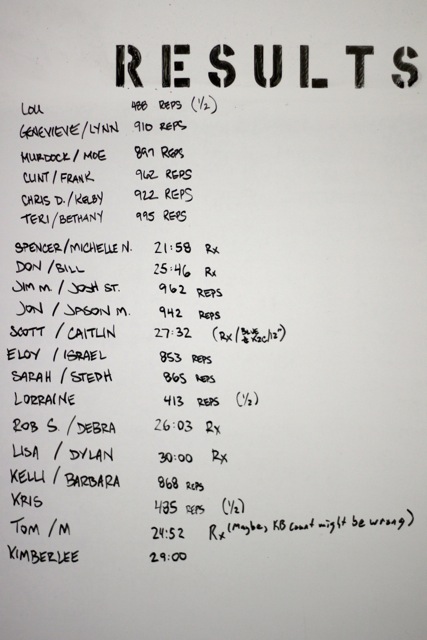 RESULTS
LOU 488 REPS (1/2)
GENEVIEVE/LYNN 910 REPS
MURDOCK/MOE 897 REPS
CLINT/FRANK 962 REPS
CHRIS D./KELBY 922 REPS
TERI/BETHANY 995 REPS
SPENCER/MICHELLE N. 21:58 Rx
DON/BILL 25:46 Rx
JIM M./JOSH ST. 962 REPS
JON/JASON M. 942 REPS
SCOTT/CAITLIN 27:32 (Rx/BLUE K2C/12")
ELOY/ISRAEL 853 REPS
SARAH/STEPH 865 REPS
LORRAINE 413 REPS (1/2)
ROB S./DEBRA 26:03 Rx
LISA/DYLAN 30:00 Rx
KELLI/BARBARA 868 REPS
KRIS 485 REPS (1/2)
TOM/M 24:52 Rx (Maybe, KB count might be wrong)
KIMBERLEE 29:00